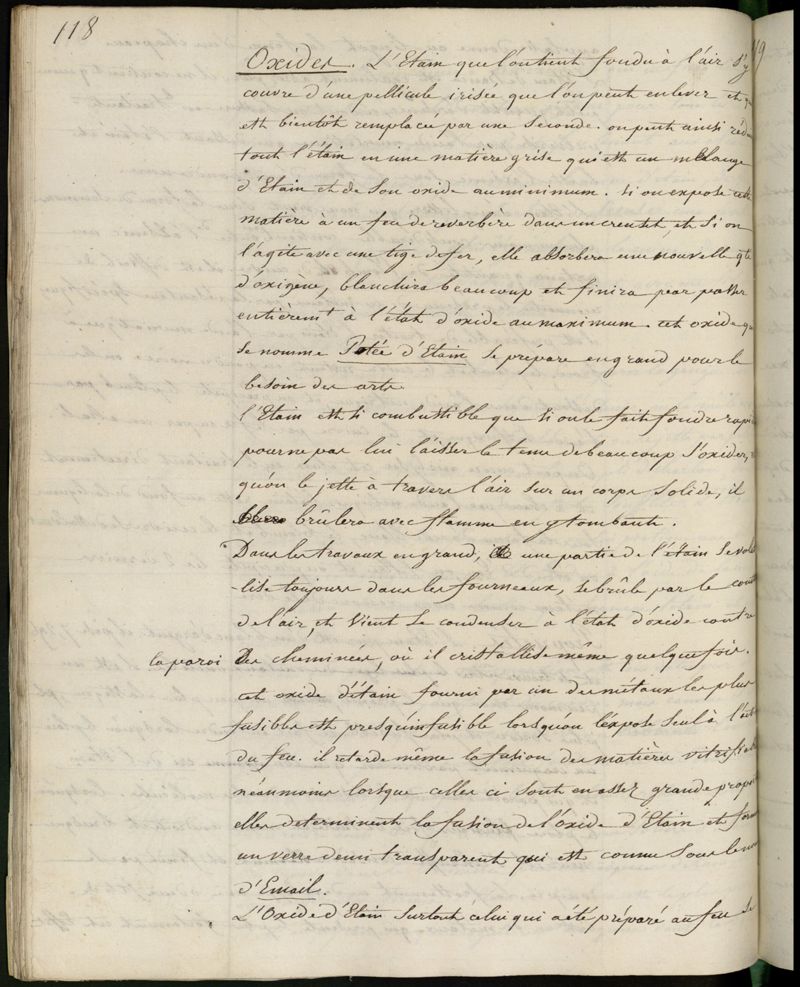 118
Oxides. L'Etain que l'on tient fondu à l'air s'y
couvre d'une pellicule irisée que l'on peut enlever et q
est bientôt remplacée par une seconde. on peut ainsi réd
tout l'étain en une matière grise qui est un mélange
d'Etain et de son oxide au minimum. Si on expose cette
matière à un feu de reverbère dans un creuset, et si on
l'agite avec une tige de fer, elle absorbera une nouvelle qté
d'oxigène, blanchira beaucoup et finira par passer
entièremt à l'état d'oxide au maximum. cet oxide q
se nomme Potée d'Etain se prépare en grand pour le
besoin des arts.
l'Etain est si combustible que si on le fait fondre rapi
pour ne pas lui laisser le tems de beaucoup s'oxider,
qu'on le jette à travers l'air sur un corps solide, il
brûlera avec flamme en y tombant.
Dans les travaux en grand, une partie de l'étain se vola
-lise toujours dans les fourneaux, se brûle par le cou
de l'air, et vient se condenser à l'état d'oxide contre
la paroi des cheminées, où il cristallise même quelquefois.
cet oxide d'étain fourni par un des métaux les plus
fusibles est presqu'infusible lorsqu'on l'expose seul à l'act
du feu. il retarde même la fusion des matières vitrifiab
néanmoins lorsque celles ci sont en assez grande propo
elles determinent la fusion de l'oxide d'Etain et form
un verre demi transparent qui est connu sous le nom
d'Email.
L'Oxide d'Etain surtout celui qui a été préparé au feu se